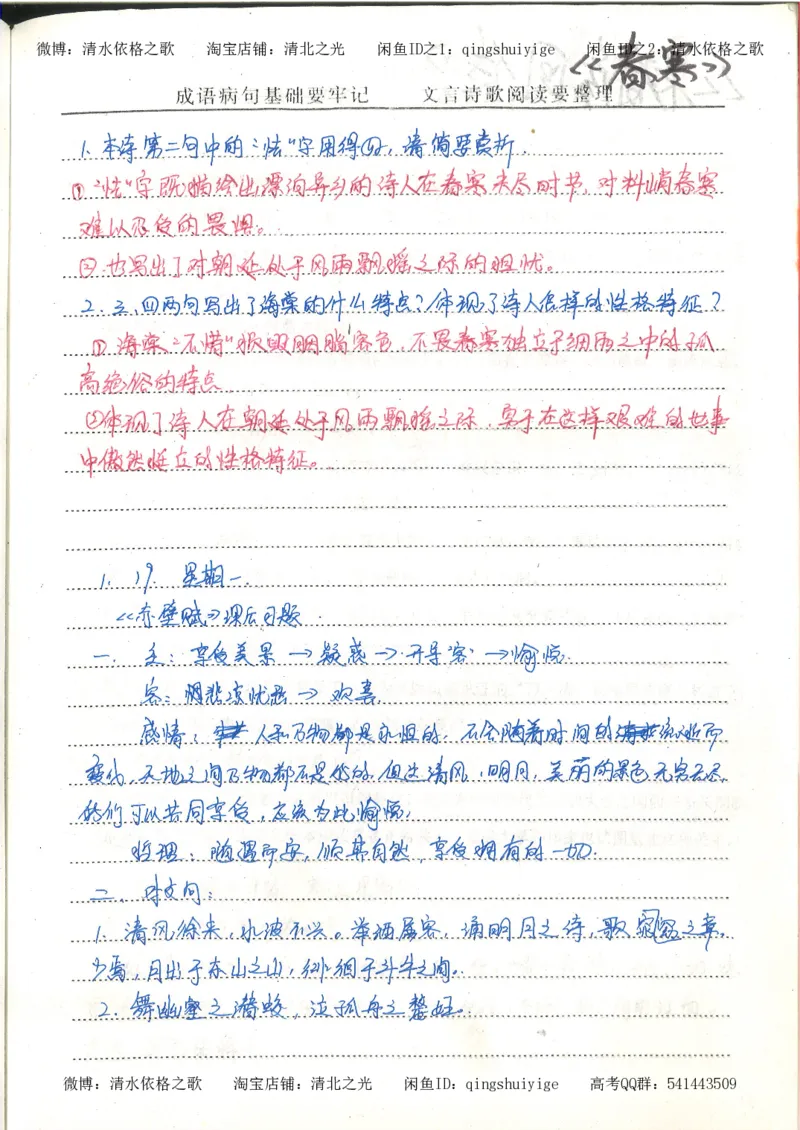 微博：清水依格之歌　　淘宝店铺：清北之光　　闲鱼ID之1：qingshuiyige　　闲鱼ID之2：清水依格之歌
《春寒》
成语病句基础要牢记　　文言诗歌阅读要整理
1. 本诗第二句中的"怯"字用得好，请简要赏析．
①"怯"字既描绘出漂泊异乡的诗人在春寒未尽时节，对料峭春寒
难以忍受的畏惧。
② 也写出了对朝廷处于风雨飘摇之际的担忧。
2. 三、四两句写出了海棠的什么特点？体现了诗人怎样的性格特征？
① 海棠"不惜"损毁胭脂容色，不畏春寒独立于细雨之中的孤
高绝俗的特点
②体现了诗人在朝廷处于风雨飘摇之际，实于在这样艰难的世事
中傲然挺立的性格特征。
1. 19. 星期一.
《赤壁赋》课后习题
一. 主：享受美果→疑惑→开导客→愉悦.
客：悲凉忧愁→欢喜.
感情： 人和万物都是永恒的，不会随着时间的流逝而
变化，天地之间万物都不是我的，但这清风，明月，美丽的景色无穷无尽，
我们可以共同享受，应该为此愉悦.
哲理：随遇而安，顺其自然，享受拥有的一切.
二、对文句：
1. 清风徐来，水波不兴。举酒属客，诵明月之诗，歌窈窕之章。
少焉，月出于东山之上，徘徊于斗牛之间。
2. 舞幽壑之潜蛟，泣孤舟之嫠妇。
微博：清水依格之歌　　淘宝店铺：清北之光　　闲鱼ID：qingshuiyige　　高考QQ群：541443509